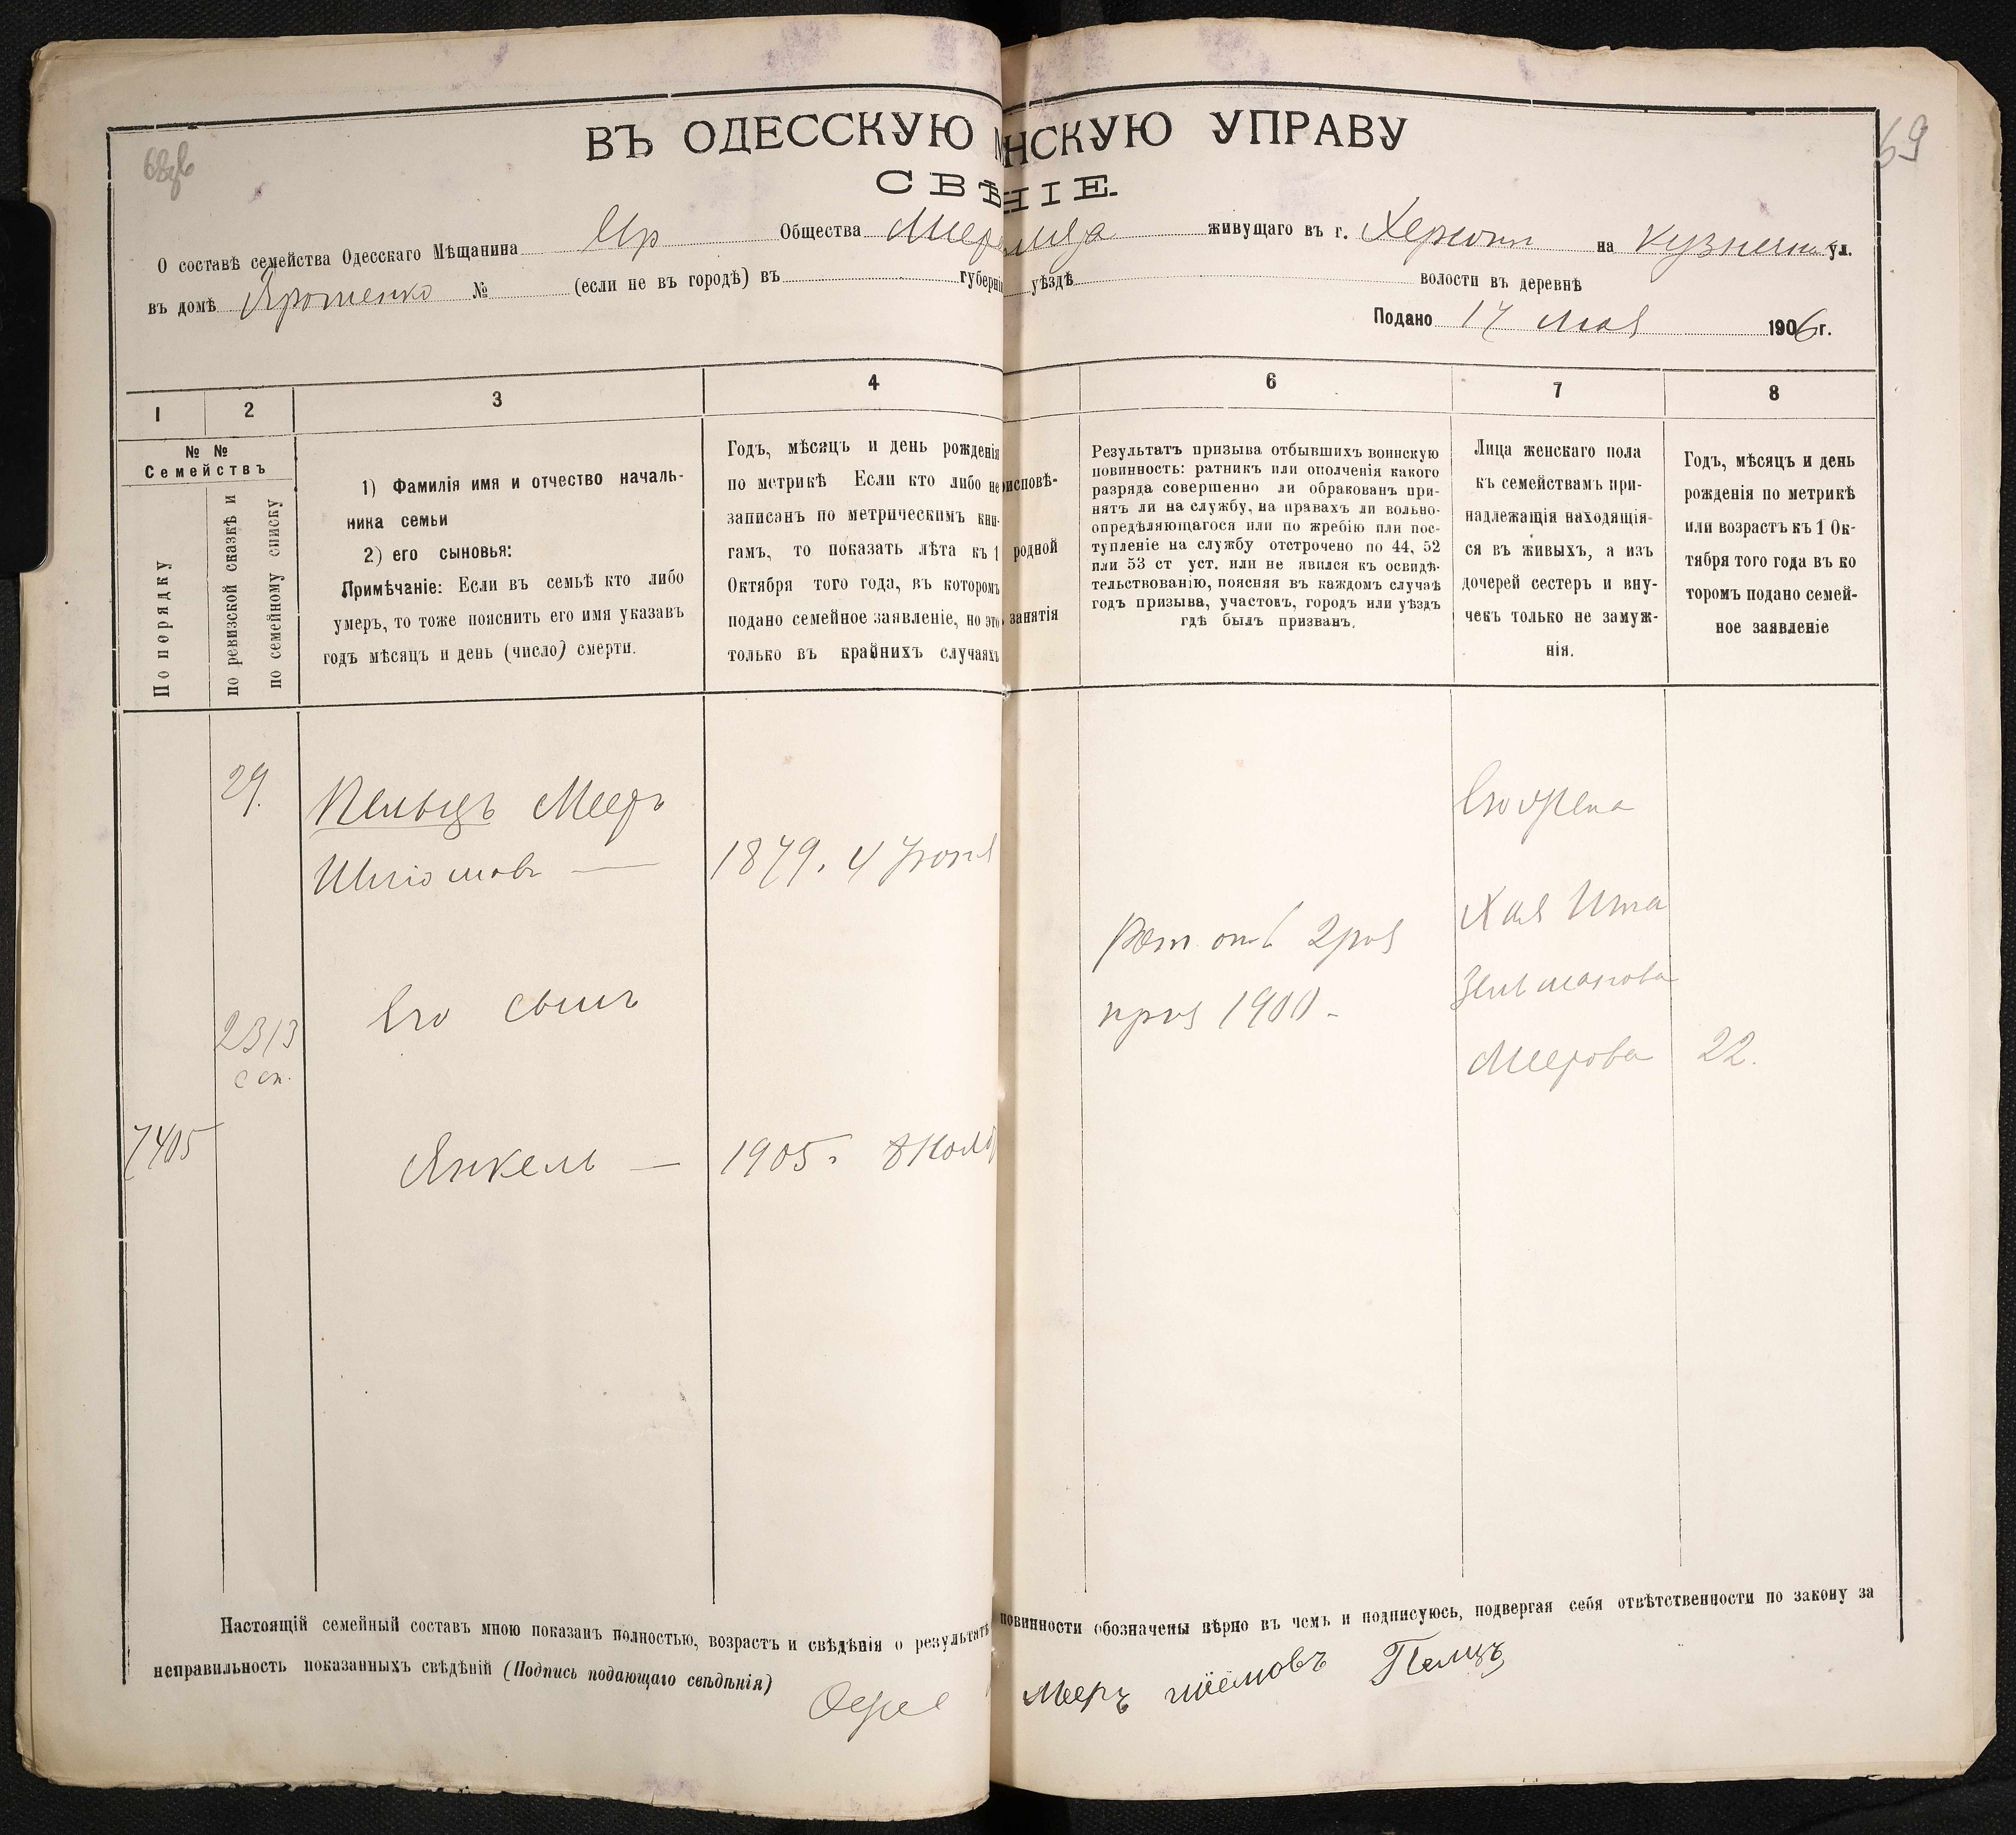 68об
69
ВЪ ОДЕССКУЮ НСКУЮ УПРАВУ
СВѢНІЕ.
О составѣ семейства Одесскаго Мѣщанина Евр Общества живущаго въ г. Херсони на Кузнечн ул.
въ домѣ № (если не въ городѣ) въ губерніи уѣздѣ волости въ деревнѣ
Подано 17 мая 1906 г.
1 2 3 4 6 7 8
№ №
Семействъ
По порядку
по ревизской сказкѣ и
по семейному списку
1) Фамилія имя и отчество началь-
ника семьи
2) его сыновья:
Примѣчаніе: Если въ семьѣ кто либо
умеръ, то тоже пояснить его имя указавъ
годъ мѣсяцъ и день (число) смерти.
Годъ, мѣсяцъ и день рожденія
по метрикѣ Если кто либо не
записанъ по метрическимъ кни-
гамъ, то показать лѣта къ 1
Октября того года, въ которомъ
подано семейное заявленіе, но это
только въ крайнихъ случаяхъ
исповѣ-
родной
занятія
Результатъ призыва отбывшихъ воинскую
повинность: ратникъ или ополченія какого
разряда совершенно ли обракованъ при-
нятъ ли на службу, на правахъ ли вольно-
опредѣляющагося или по жребію или пос-
тупленіе на службу отстрочено по 44, 52
или 53 ст уст. или не явился къ освидѣ-
тельствованію, поясняя въ каждомъ случаѣ
годъ призыва, участокъ, городъ или уѣздъ
гдѣ былъ призванъ.
Лица женскаго пола
къ семействамъ при-
надлежащія находящія-
ся въ живыхъ, а изъ
дочерей сестеръ и вну-
чекъ только не замуж-
нія.
Годъ, мѣсяцъ и день
рожденія по метрикѣ
или возрастъ къ 1 Ок-
тября того года въ ко
торомъ подано семей-
ное заявленіе
29. Пельцъ Мееръ
Шліомовъ — 1879. 4
Его жена
Хая Ита
2 раз
Зельманова
приз 1900 -
Его сынъ
2313
с сп.
Меерова 22.
7405 Янкель — 1905. 8 Нояб
Настоящій семейный составъ мною показанъ полностью, возрастъ и свѣдѣнія о результатѣ повинности обозначены вѣрно въ чемъ и подписуюсь, подвергая себя отвѣтственности по закону за
неправильность показанныхъ свѣдѣній (Подпись подающаго свѣдѣнія)
Мееръ Пелцъ